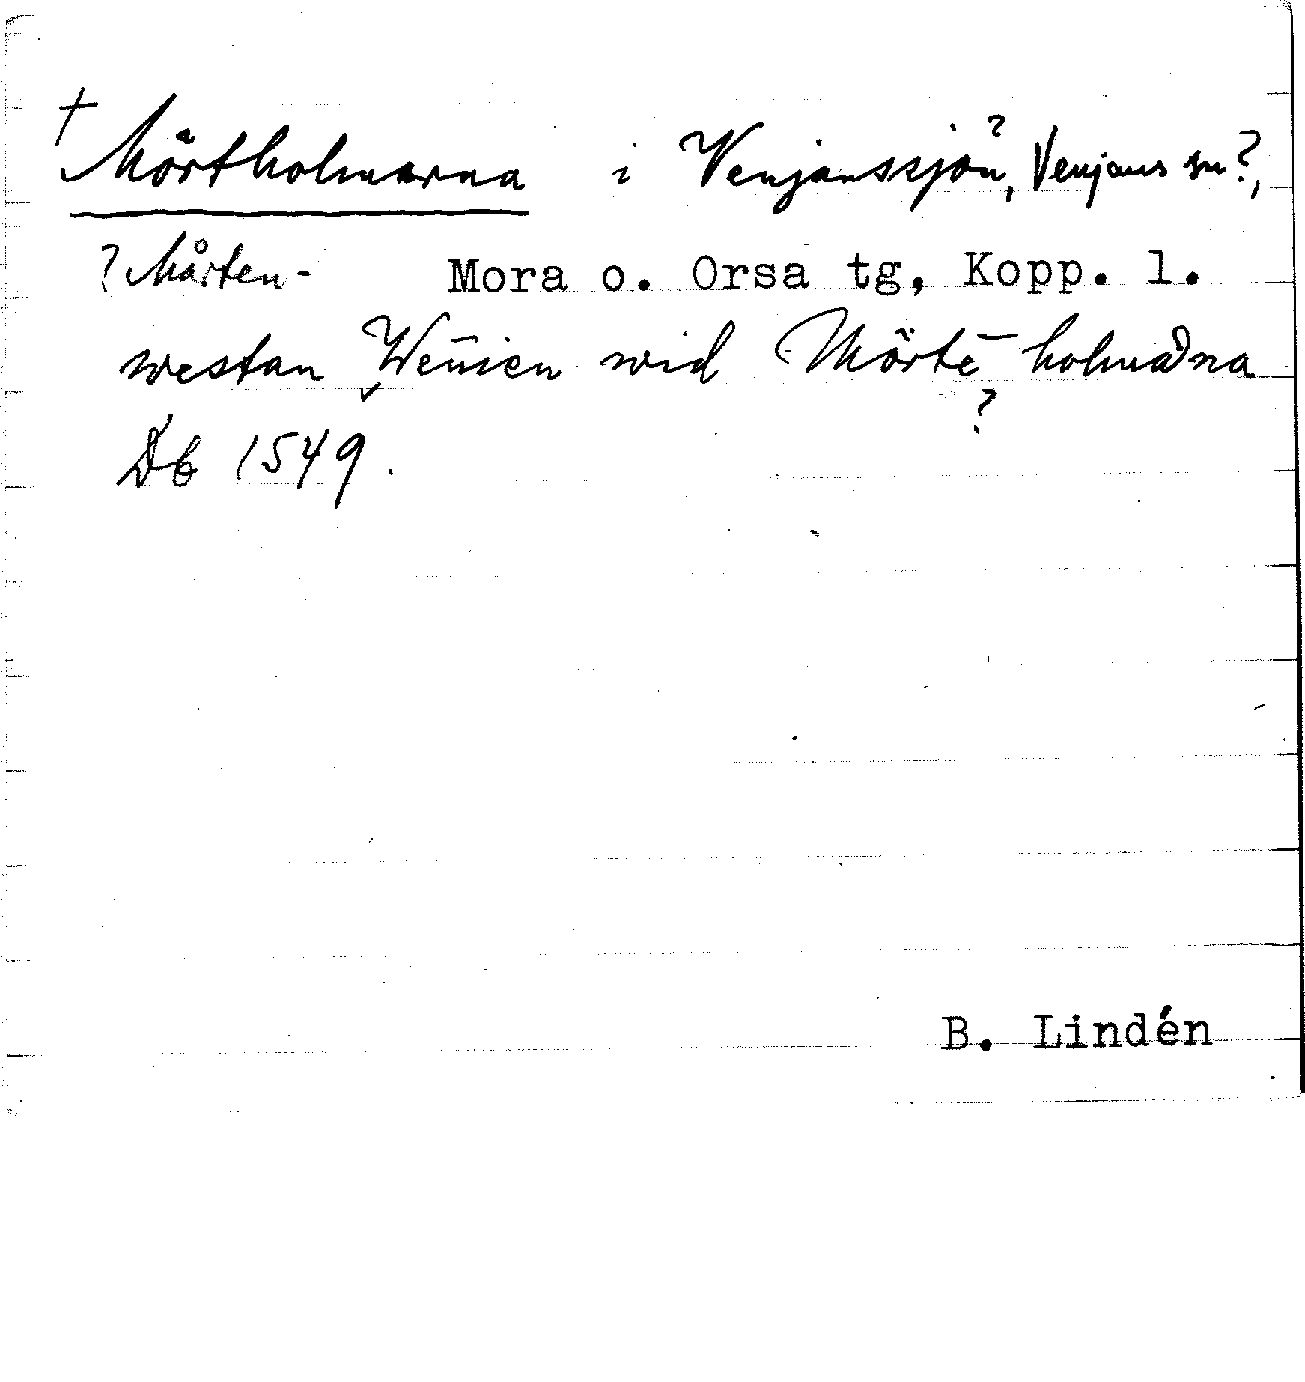 † Mörtholmarna i Venjanssjön?, Venjans sn?,
? Mårten- Mora o. Orsa tg, Kopp. l.
westan Wenien wid Mörtē holmana
?
Db 1549.
B. Lindén